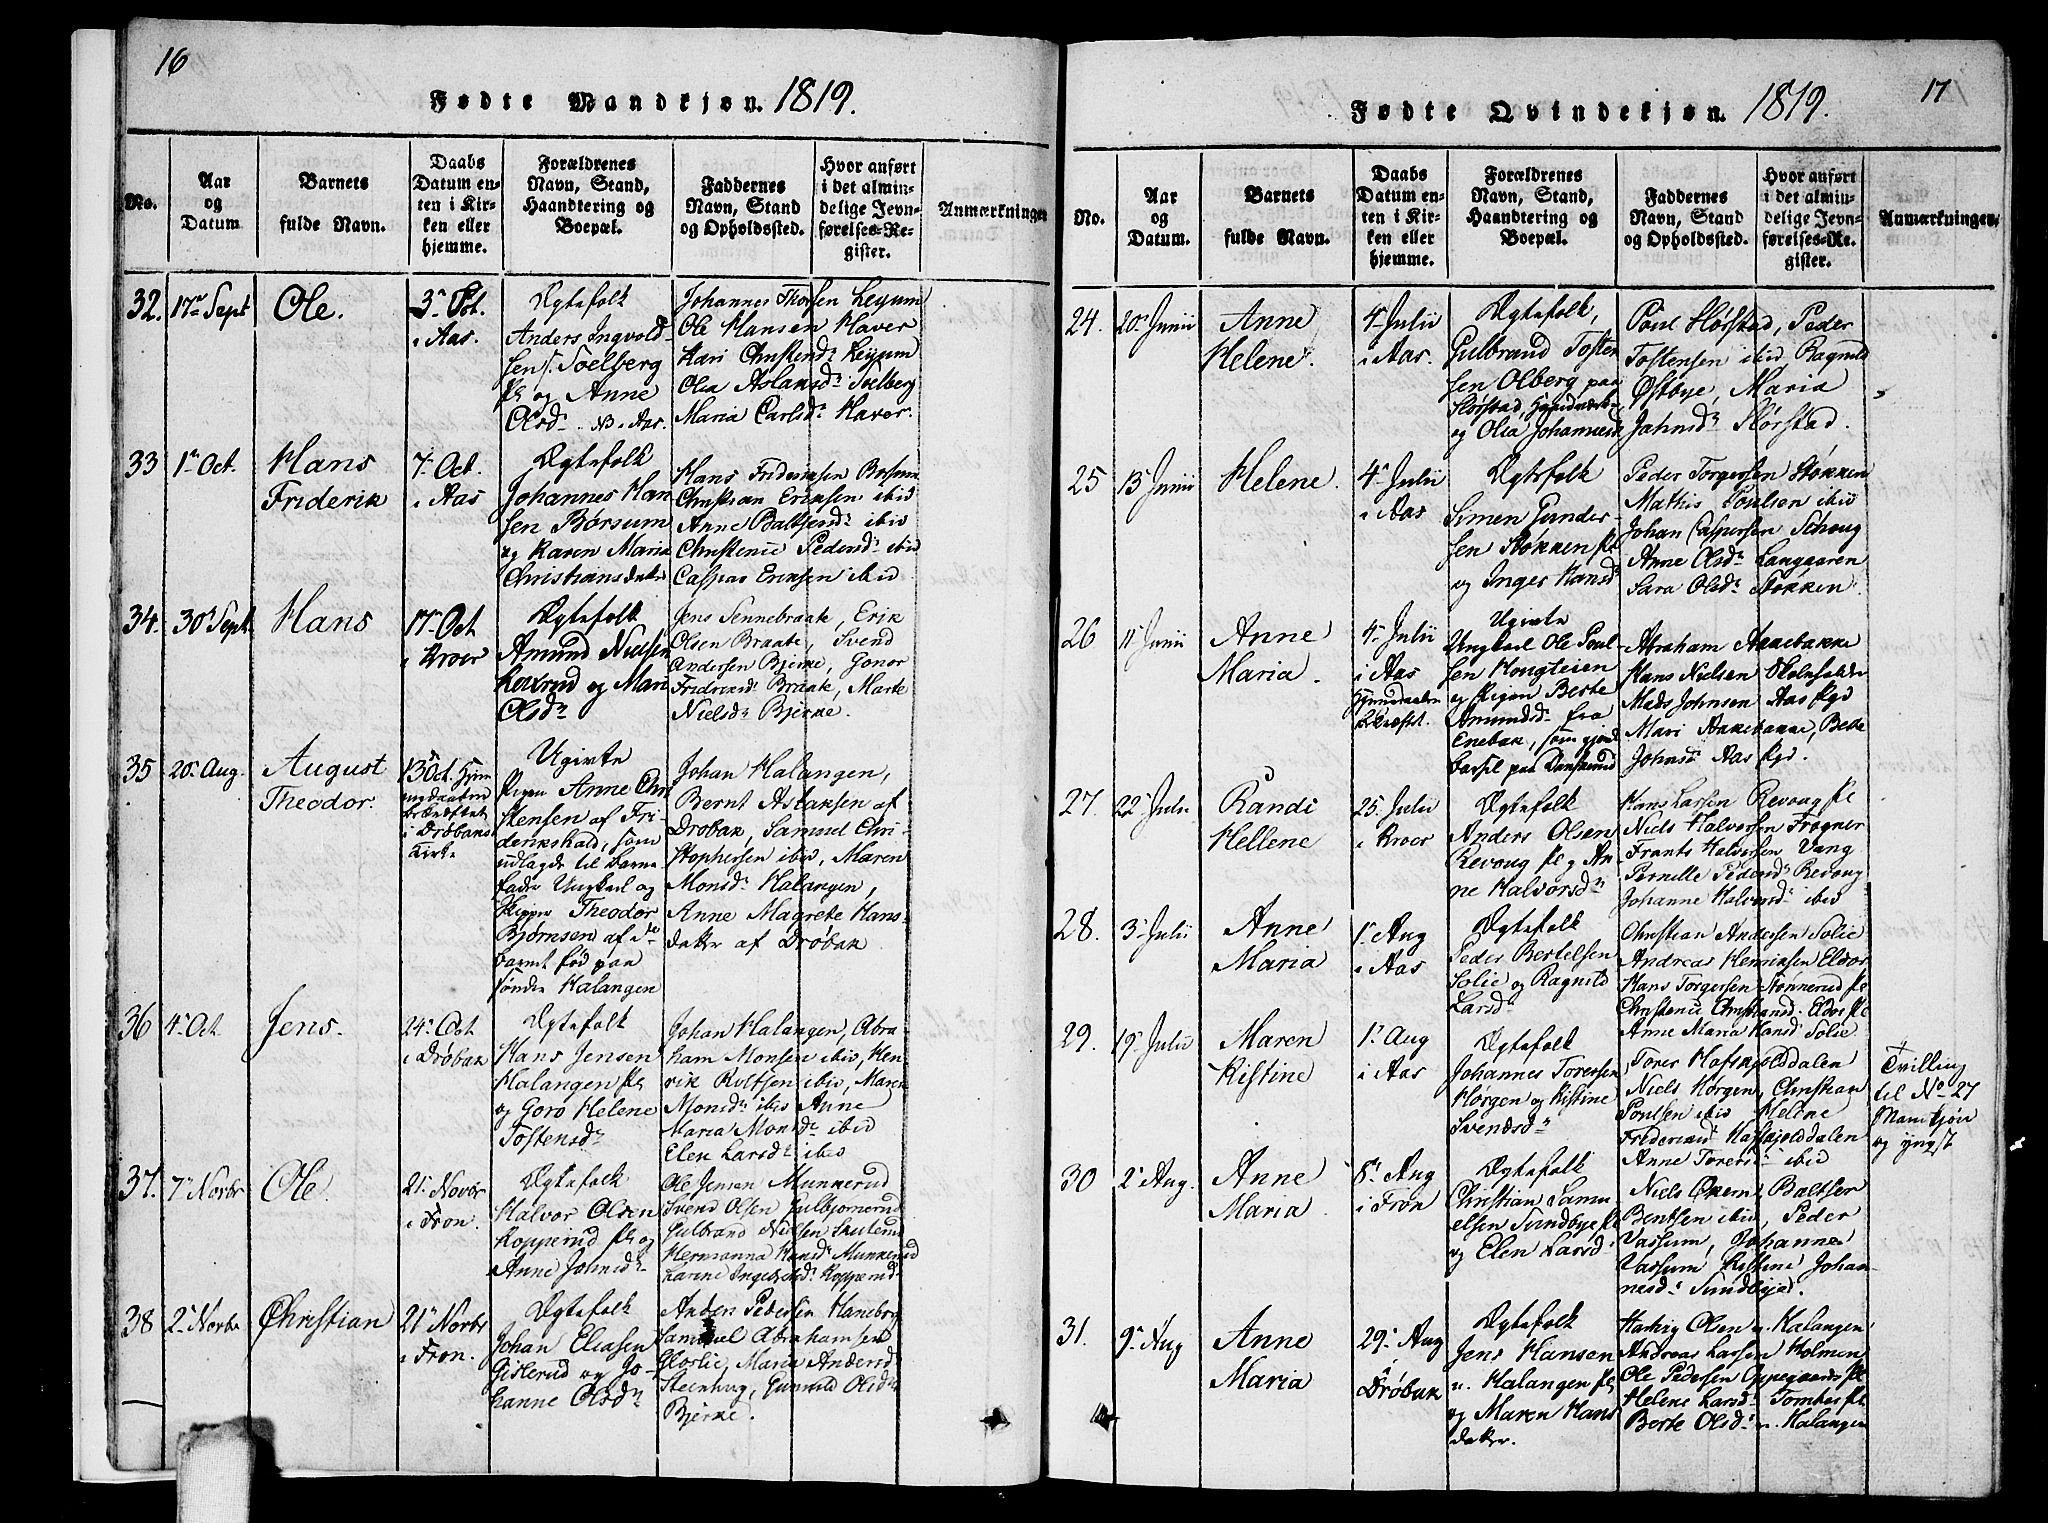 16
Fødte Mandkjøn. 1819.
No.
Aar
og
Datum
Barnets
fulde Navn.
Daabs
Datum en-
ten i Kir-
ken eller
hjemme.
Forældrenes
Navn, Stand,
Haandtering og
Boepæl.
Faddernes
Navn, Stand
og Opholdssted.
Hvor anført
i det almin-
delige Jevn-
førelses-Re-
gister.
Anmærkninger
32.
17 Sept
Ole.
3 Oct.
i Aas.
Ægtefolk
Anders Ingvold-
sen Soelberg
og Anne
Olsd. Aas.
Johannes Thorsen Leyum
Ole Hansen Haver
Kari Christensd. Leyum
Olia Aslansd. Soelberg
Maria Carlsd. Haver.
33
1 Oct.
Hans
Friderik
7 Oct.
i Aas
Ægtefolk
Johannes Han
sen Børsum
og Karen Maria
Christiansdatter
Hans Fridericksen Borsum
Christian Eriksen ibid
Anne Baltsersd. ibid
Christense Pedersd. ibid
Caspar Eriksen ibid
34.
30 Sept.
Hans
17 Oct
i Kroer
Ægtefolk
Amund Nielsen
og Mari
Olsd.
Jens Sennebraate, Erik
Olsen Braate, Svend
Andersen Bjerke, Gonor
Fridricsd. Braate, Marte
Nielsd. Bjerke.
35
20 Aug.
August
Theodor.
13 Oct. Hjem
medaaben
bekræftet
i Drøbaks
Kirke
Ugivte
Pigen Anne Chri
stensen af Fri-
derikshald, som
udlagde til Barne
fader Ungkarl og
Skipper Theodor
Bjørnsen af
Barnet fød paa
søndre Halangen
Johan Halangen,
Bernt Aslaksen af
Drøbak, Samuel Chri-
stophersen ibid, Maren
Monsd. Halangen,
Anne Magrete Hans-
datter af Drøbak
36
4 Oct
Jens.
24 Oct
i Drøbak
Ægtefolk
Hans Jensen
Halangen
og Goro Helene
Tostensd.
Johan Halangen, Abra
ham Monsen ibid, Hen
rik Roltsen ibid, Maren
Monsd. ibid Anne
Maria Monsd. ibid
Elen Larsd. ibid
37.
7 Novbr
Ole
21 Novbr
i Fron.
Ægtefolk
Halvor Olsen
Kopperud og
Anne Johnsd.
Ole Jensen Munkerud
Svend Olsen Gulbjørnerud
Gulbrand Nielsen Skuterud
Hermanna Hansd. Munkerud
Larine Ingebretsd. Kopperud
38
2 Novbr
Christian
21 Novbr
i Fron.
Ægtefolk
Johan Eliasen
Gislerud og Jo-
hanne Olsd.
Anders Pedersen Haneborg
Samuel Abrahamsen
Glorlie, Maria Andersd
Steenhug, Gunild Olsd.
Bjerke.
17
Fødte Qvindekjøn. 1819.
No.
Aar
og
Datum.
Barnets
fulde Navn.
Daabs
Datum en-
ten i Kir-
ken eller
hjemme.
Forældrenes
Navn, Stand,
Haandtering og
Boepæl.
Faddernes
Navn, Stand
og Opholdssted.
Hvor anført
i det almin-
delige Jevn-
førelses-Re-
gister.
Anmærkninger.
24.
20 Junii
Anne
Helene.
4 Julii
i Aas.
Ægtefolk,
Gulbrand Tosten
sen Olberg paa
og Olia Johannesd.
Poul Hørstad, Peder
Tostensen ibid Ragnild
Østbye, Maria
Jahnsd. Hørstad.
25
13 Junii
Helene.
4 Julii
i Aas
Ægtefolk
Simen Gunder-
sen Stokken
og Inger Hansd.
Peder Torgersen Stokken
Mathis Poulsen ibid
Johan Caspersen Schoug
Anne Olsd. Langaaren
Sara Olsd. Stokken.
26
11 Junii
Anne
Maria.
4 Julii
i Aas
Hjemmedaaben
bekræftet.
Ugivte
Ungkarl Ole Poul
sen Hougteien
og Pigen Berte
Amundsd. fra
Enebak, som gjord
barsel paa
Abraham Aakebakke
Hans Nielsen
Mads Johnsen Aas
Mari Aakebakke, Berte
Johnsd. Aas
27.
22 Julii
Randi
Hellene
25 Julii
i Kroer
Ægtefolk
Anders Olsen
Revoug og An
ne Halvorsd.
Hans Larsen Revoug
Niels Halvorsen Frogner
Frants Halvorsen Vang
Pernille Pedersd. Revoug
Johanne Halvorsd. ibid
28.
3 Julii
Anne
Maria
1 Aug
i Aas
Ægtefolk
Peder Bertelsen
Solie og Ragnild
Larsd.
Christian Andersen Solie
Andreas Henriksen Eldor
Hans Torgersen Stønnerud
Christense Christiansd. Eldor
Anne Maria Hansd. Solie
29.
19 Julii
Maren
Kistine
1 Aug
i Aas
Ægtefolk
Johannes Torersen
Hørgen og Kistine
Svendsd.
Torer Hafskjolddalen
Niels Hørgen, Christian
Poulsen ibid Helene
Fredericsd. Hafskjolddalen
Anne Torersd. ibid
Tvilling
til No 27
Mandkjøn
og yngst
30
2 Aug.
Anne
Maria.
8 Aug
i Fron
Ægtefolk
Christian Samu
elsen Sundbye
og Elen Larsd.
Niels Økern, Baltser
Bentsen ibid, Peder
Vassum, Johanne
Vassum Kistine Johan-
nesd. Sundbye.
31.
9 Aug
Anne
Maria
29 Aug
i
Drøbak
Ægtefolk
Jens Hansen
n. Halangen
og Maren Hans
datter.
Hartvig Olsen n. Halangen
Andreas Larsen Holmen
Ole Pedersen Oppegaard
Helene Larsd. Tomter
Berte Olsd. n. Halangen